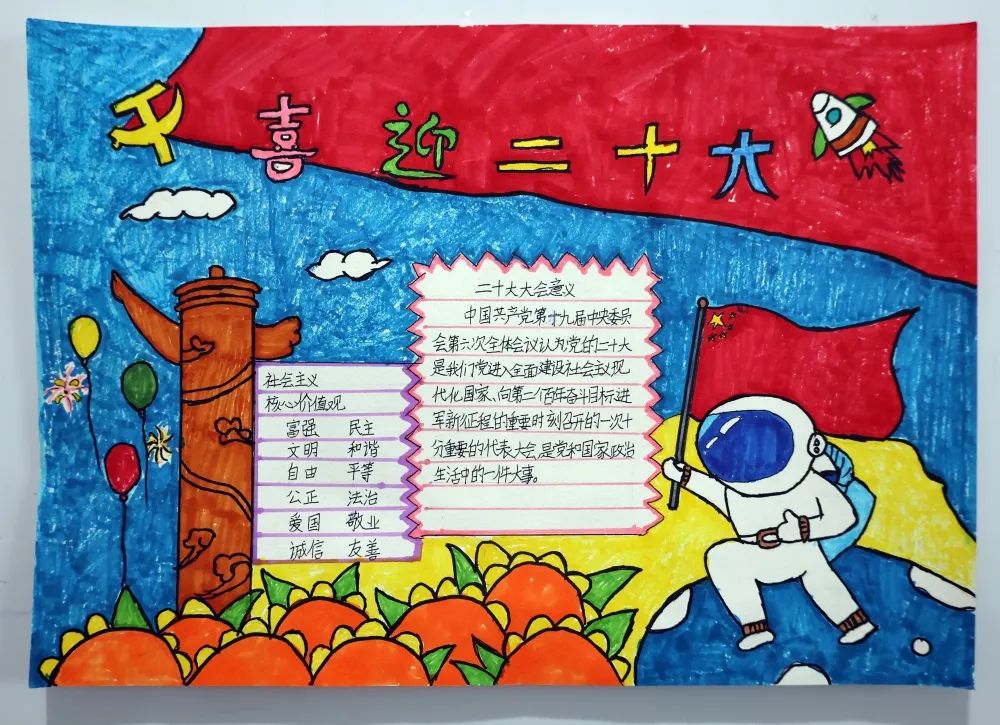 喜迎二十大
社会主义
核心价值观
富强 民主
文明 和谐
自由 平等
公正 法治
爱国 敬业
诚信 友善
二十大大会意义
中国共产党第十九届中央委员
会第六次全体会议认为,党的二十大
是我们党进入全面建设社会主义现
代化国家、向第二个百年奋斗目标进
军新征程的重要时刻召开的一次十
分重要的代表大会,是党和国家政治
生活中的一件大事。